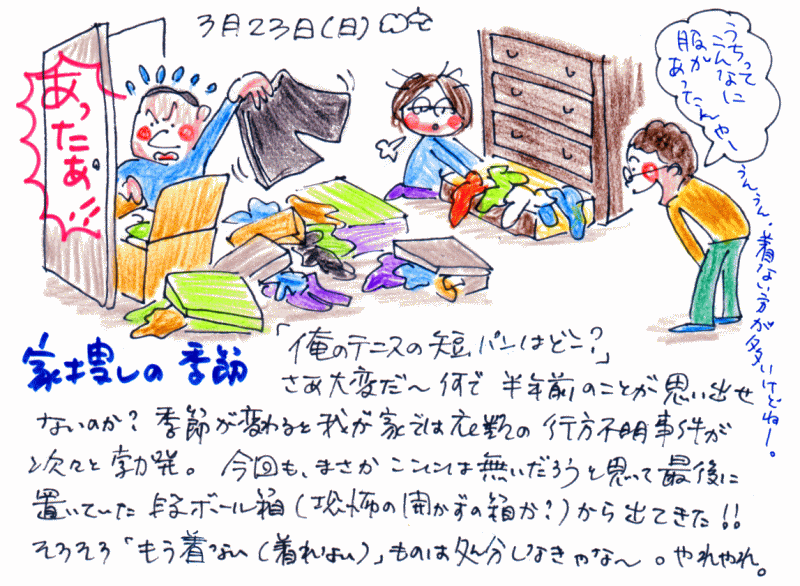 3月23日(日)
あったぁ!!
うちって
こんなに
服が
あったんやー
うんうん、着ない方が多いけどねー。
家捜しの季節
「俺のテニスの短パンはどこ?」
さあ大変だ～何で半年前のことが思い出せ
ないのか? 季節が変わると我が家では衣類の行方不明事件が
次々と勃発。今回も、まさかここには無いだろうと思って最後に
置いていた段ボール箱(恐怖の開かずの箱か?)から出てきた!!
そろそろ「もう着ない(着れない)」ものは処分しなきゃな～。やれやれ。